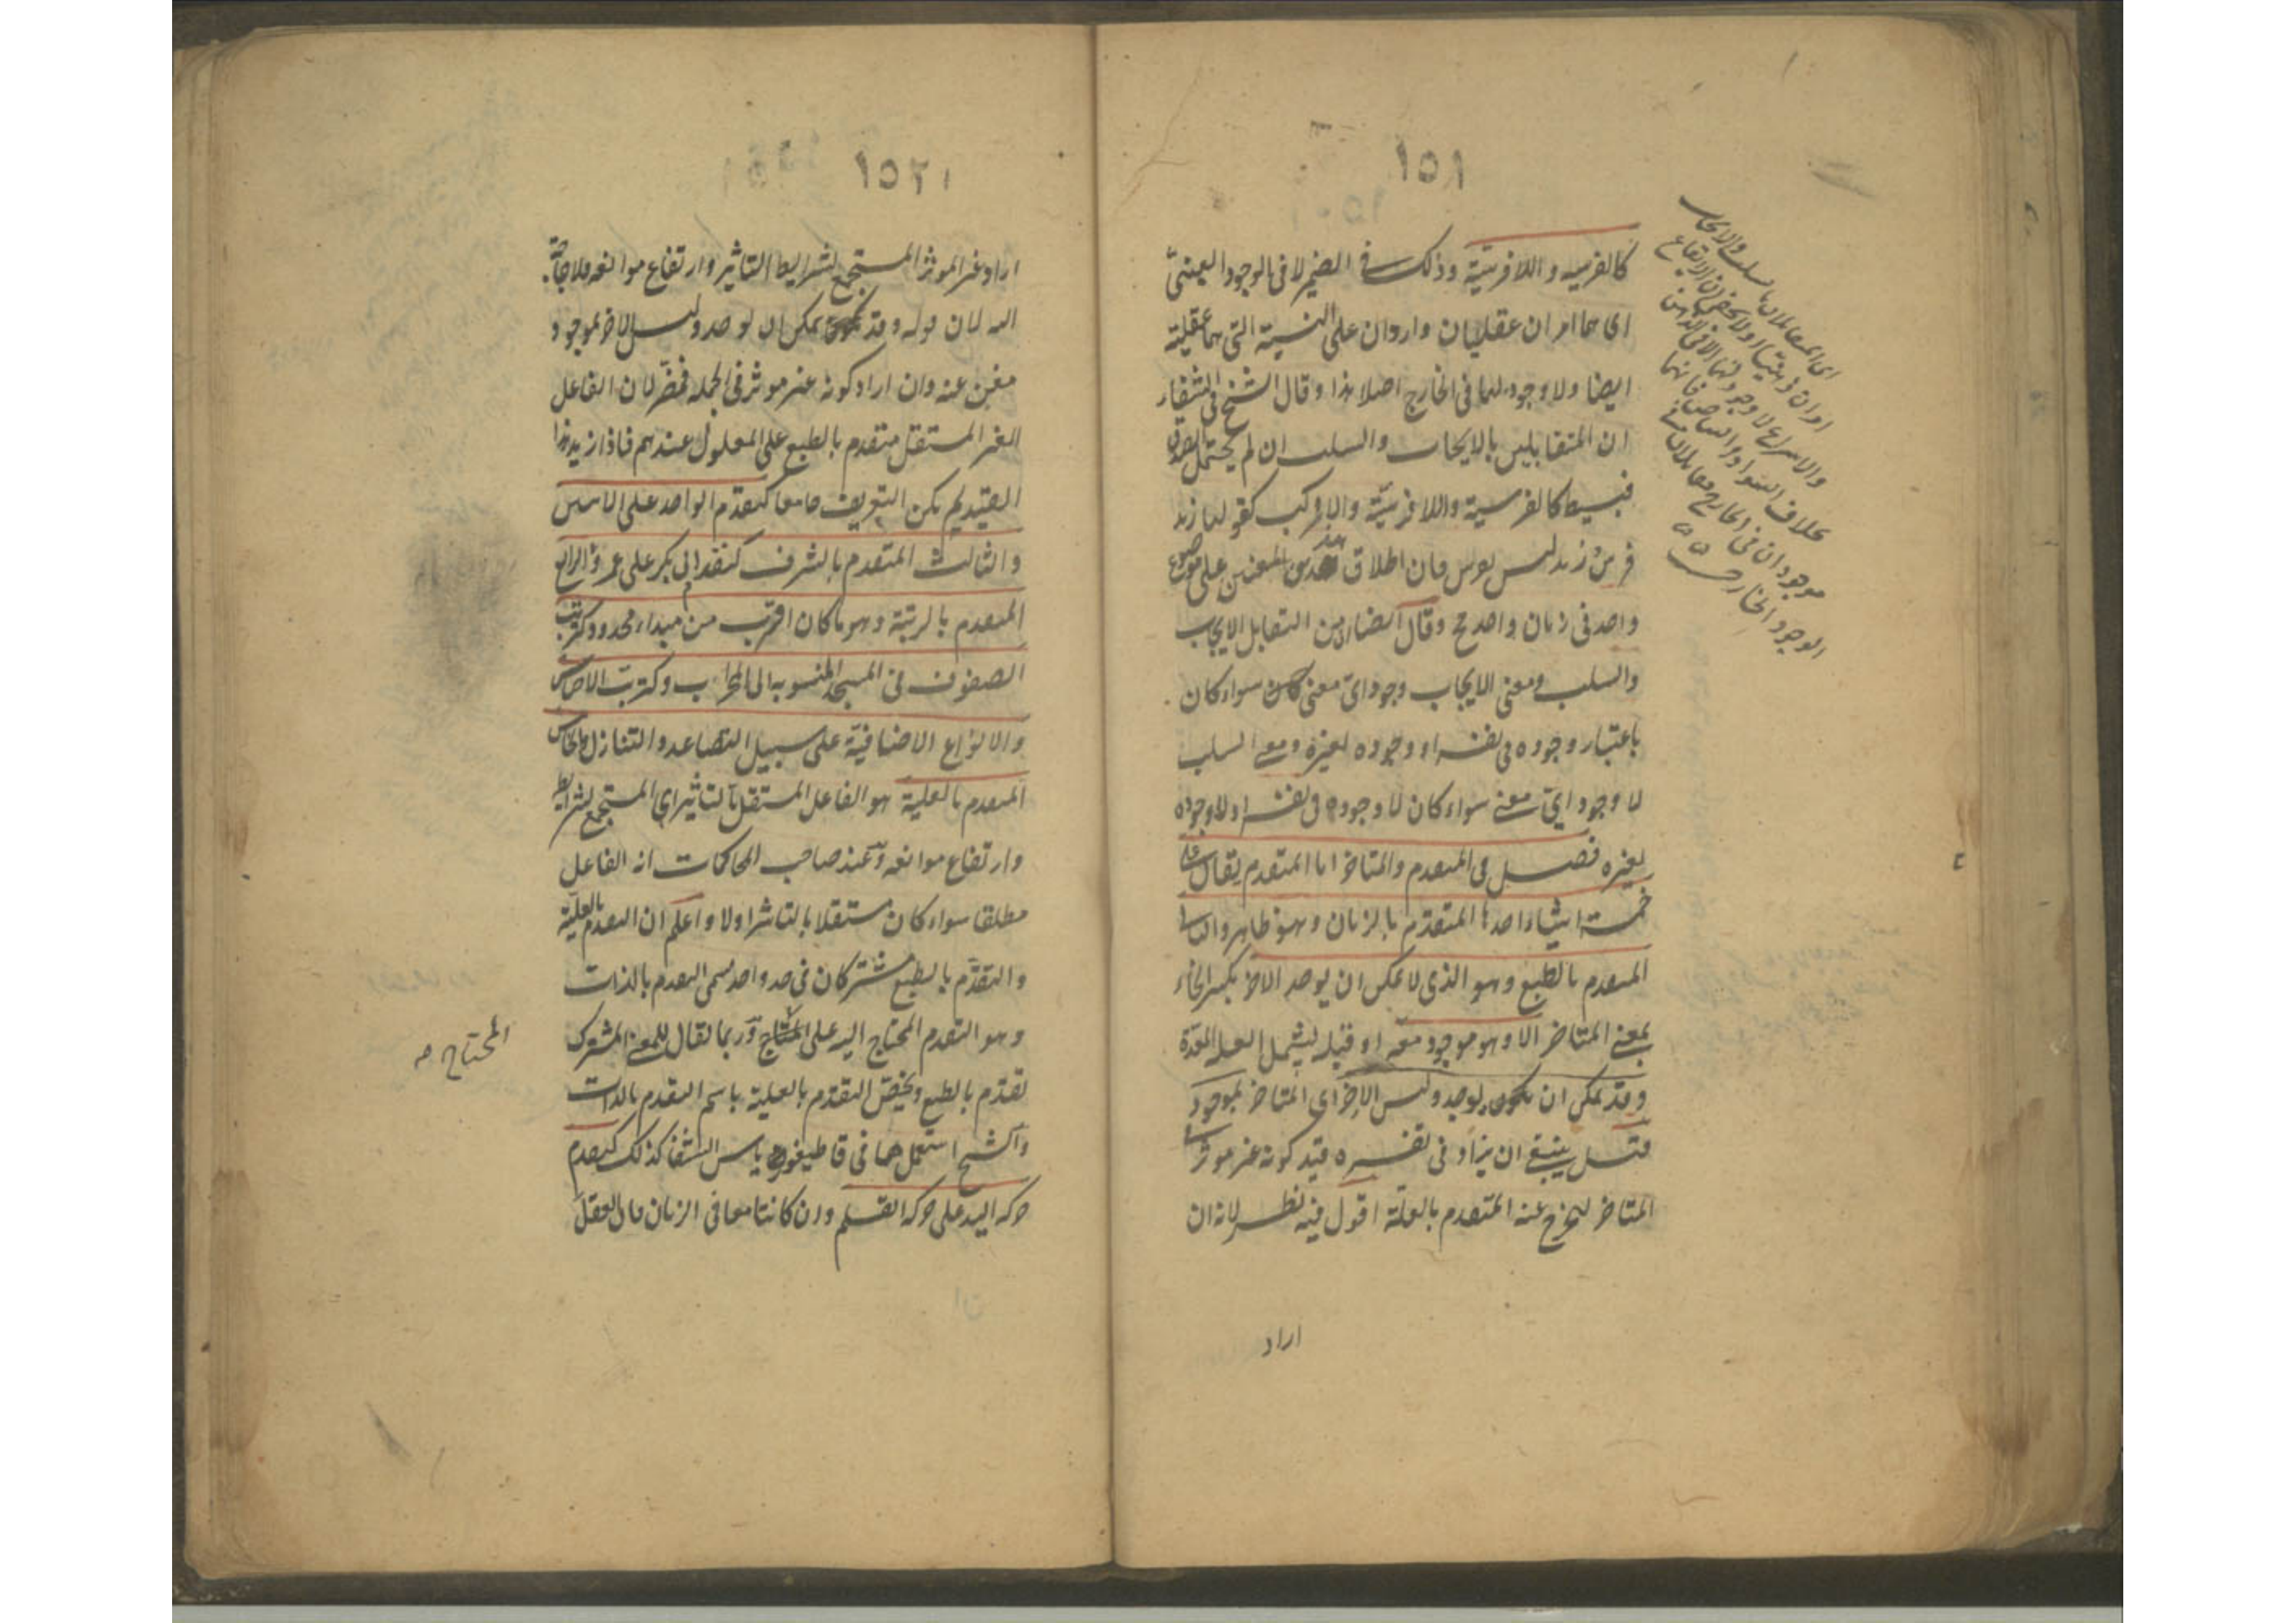 ١٥١
كالفرسيه واللافرسيّة وذلك في الضمير لا في الوجود العينيّ
اى هما امران عقليان واردان على النسبة التى هما عقلية
ايضا ولا وجود لهما فى الخارج اصلا هذا وقال الشيخ فى الشفاء
ان المتقابلين بالايجاب والسلب ان لم يحتمل الصدق
فبسيط كالفرسية واللافرسيّة والا فمركب كقولنا زيد
فرس زيد ليس بفرس فان اطلاق هذين المعنيين على موضوع
واحد فى زمان واحد مح وقال ايضا من التقابل الايجاب
والسلب ومعنى الايجاب وجود اىّ معنى كان سواء كان
باعتبار وجوده فى نفسه او وجوده لغيره ومعنى السلب
لا وجود اىّ معنى سواء كان لا وجوده فى نفسه او لا وجوده
لغيره فصل فى المتقدم والمتاخر اما المتقدم يقال على
خمسة اشياء احدها المتقدم بالزمان وهو ظاهر والثانى
المتقدم بالطبع وهو الذى لا يمكن ان يوجد الاخر بكسر الخاء
بمعنى المتاخر الا وهو موجود معه او قبله ليشمل العلل المعدّة
وقد يمكن ان يوجد وليس الاخر اى المتاخر بموجود
قيل ينبغى ان يزاد فى تفسيره قيد كونه غير موثر فى
المتاخر ليخرج عنه المتقدم بالعلّة اقول فيه نظر لانه ان
اراد
اى المتقابلان بالسلب والايجاب
موجودان فى الخارج
الوجود الخارجى
١٥٢
اراد غير الموثر المستجمع لشرايط التاثير وارتفاع موانعه فلا حاجة
اليه لان قوله وقد يمكن ان يوجد وليس الاخر بموجود
مغن عنه وان اراد كونه غير موثر فى الجمله فمضرّ لان الفاعل
الغير المستقل متقدم بالطبع على المعلول عندهم فاذا زيد هذا
القيد لم يكن التعريف جامعا كتقدّم الواحد على الاثنين
والثالث المتقدم بالشرف كتقدم ابى بكر على عمر والرابع
المتقدم بالرتبة وهو ما كان اقرب من مبداء محدود كترتيب
الصفوف فى المسجد المنسوبه الى المحراب وكترتب الاجناس
والانواع الاضافيّة على سبيل التصاعد والتنازل والخامس
المتقدم بالعلية هو الفاعل المستقل بالتاثير اى المستجمع لشرايط
وارتفاع موانعه وعند صاحب المحاكمات انه الفاعل
مطلقا سواء كان مستقلا بالتاثير اولا واعلم ان التقدم بالعليّة
والتقدّم بالطبع مشتركان فى حد واحد يسمى التقدم بالذات
وهو التقدم المحتاج اليه على المحتاج وربما يقال للمعنى المشترك
تقدّم بالطبع ويخصّ التقدّم بالعلية باسم التقدم بالذات
والشيخ استعملهما فى قاطيغورياس الشفا كذلك كتقدم
حركه اليد على حركه القلم وان كانتا معا فى الزمان فان العقل
المحتاج صه